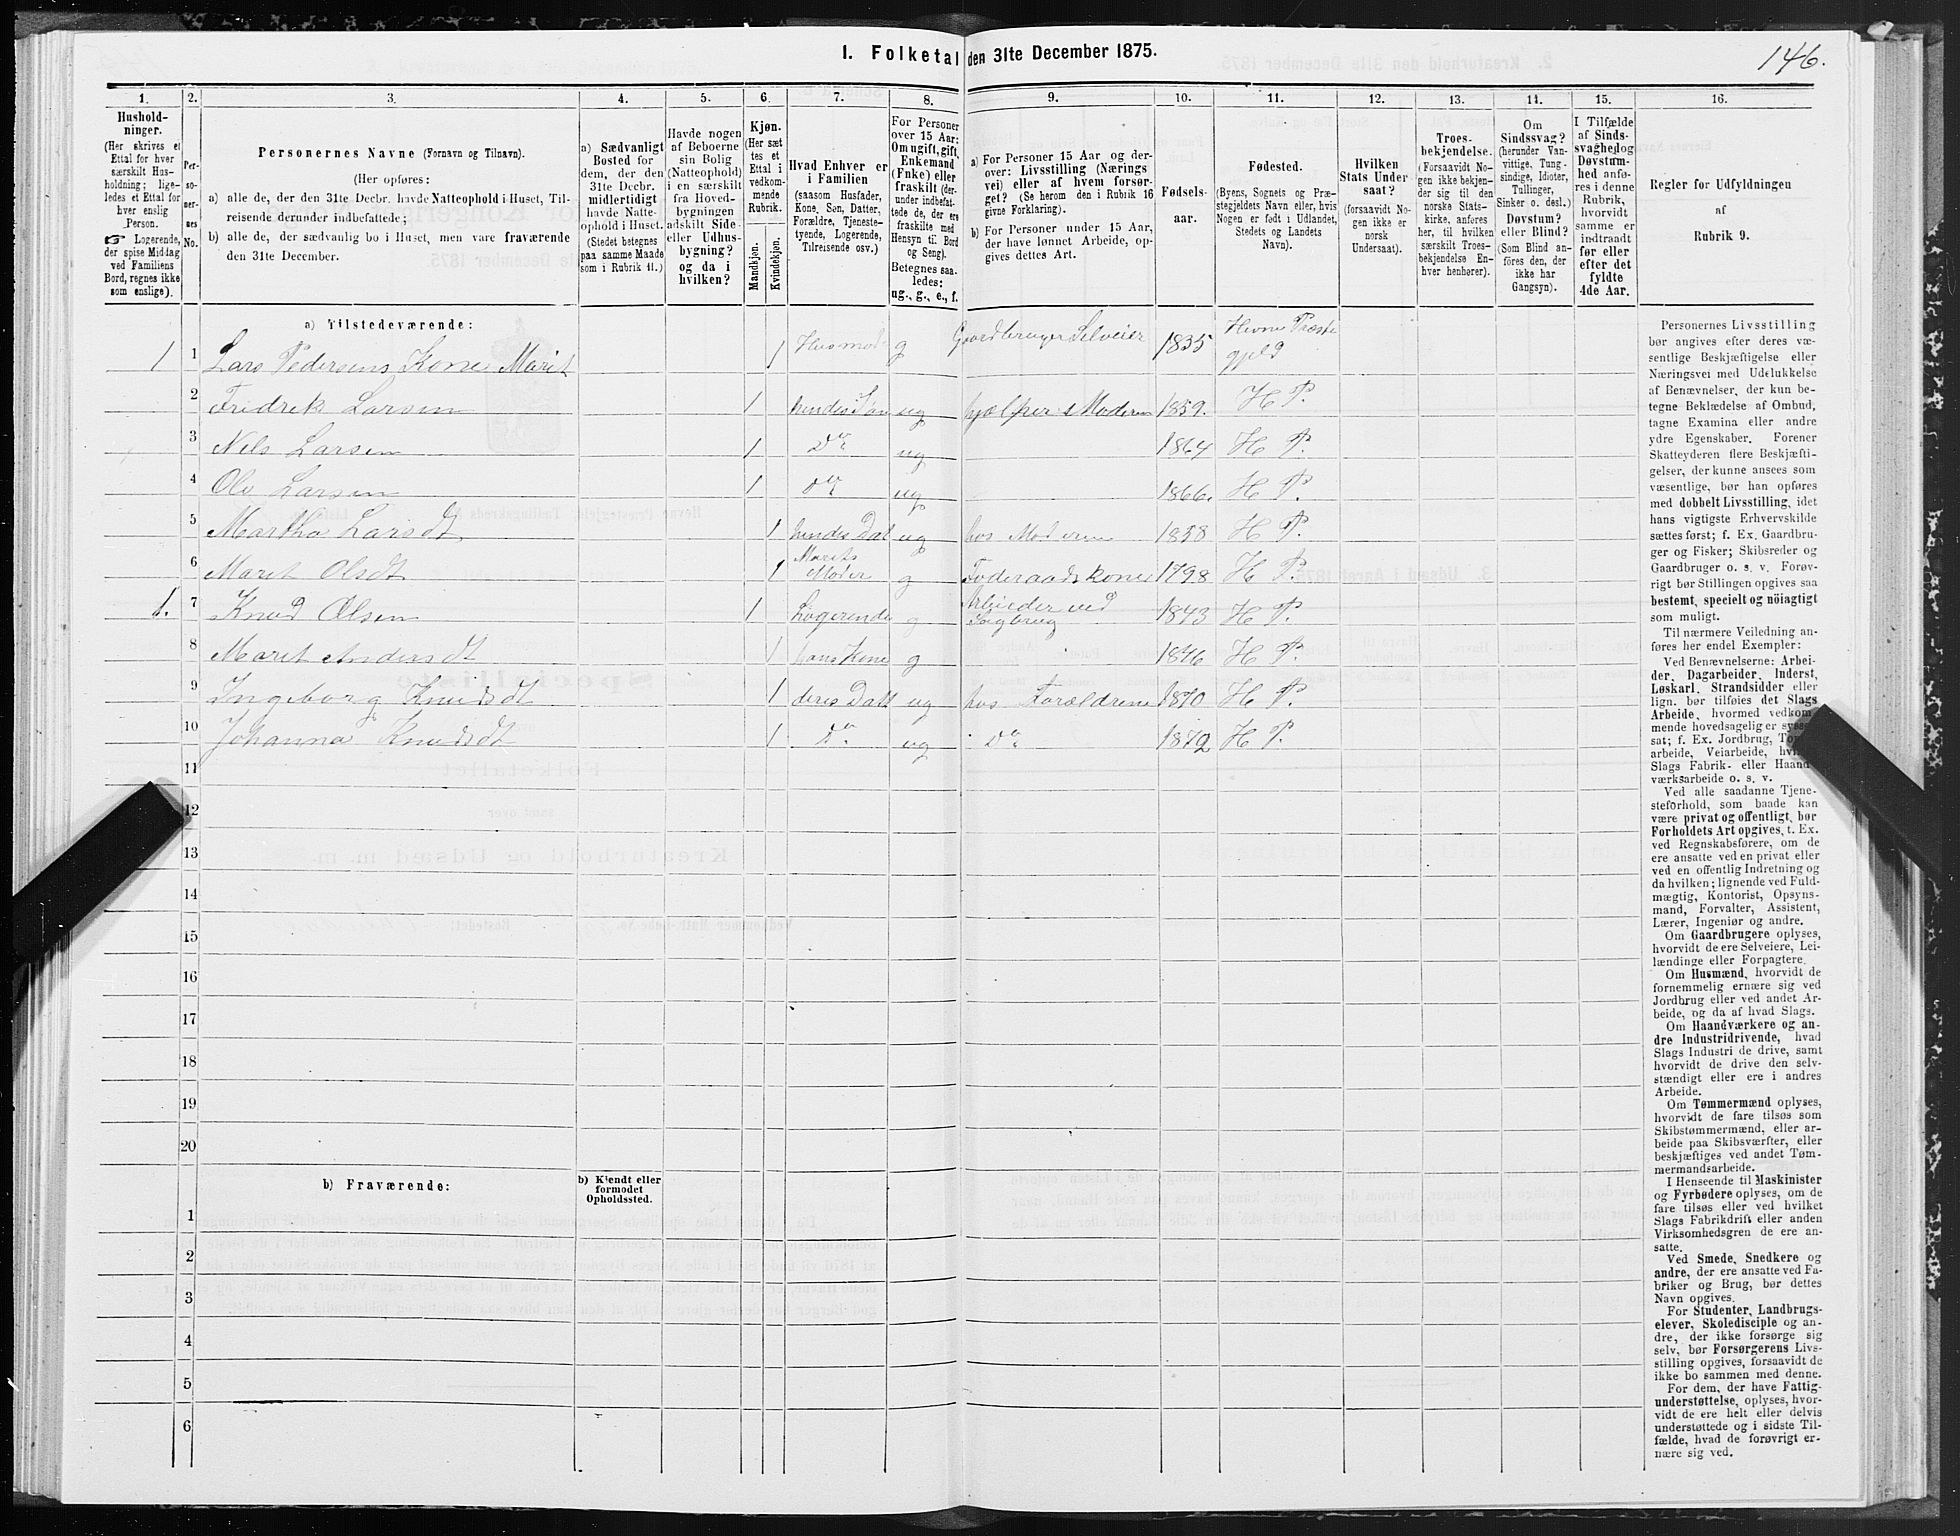 I. Folketal den 31te December 1875.
146.
1. 2. 3. 4. 5. 6. 7. 8. 9. 10. 11. 12. 13. 14. 15. 16.
Hushold-
ninger.
(Her skrives et
Ettal for hver
særskilt Hus-
holdning; lige-
ledes et Ettal for
hver enslig
Person.
☞ Logerende,
der spise Middag
ved Familiens
Bord, regnes ikke
som enslige).
Per-
so-
ner-
nes
No.
Personernes Navne (Fornavn og Tilnavn).
(Her opføres:
a) alle de, der den 31te Decbr. havde Natteophold i Huset, Til-
reisende derunder indbefattede;
b) alle de, der sædvanlig bo i Huset, men vare fraværende
den 31te December.
a) Sædvanligt
Bosted for
dem, der den
31te Decbr.
midlertidigt
havde Natte-
ophold i Huset.
(Stedet betegnes
paa samme Maade
som i Rubrik 11.)
Havde nogen
af Beboerne
sin Bolig
(Natteophold)
i en særskilt
fra Hoved-
bygningen
adskilt Side-
eller Udhus-
bygning?
og da i
hvilken?
Kjøn.
(Her sæt-
tes et
Ettal i
vedkom-
mende
Rubrik.
Mandkjøn.
Kvindekjøn.
Hvad Enhver er
i Familien
(saasom Husfader,
Kone, Søn, Datter,
Forældre, Tjeneste-
tyende, Logerende,
Tilreisende osv.)
For Personer
over 15 Aar:
Om ugift, gift,
Enkemand
(Enke) eller
fraskilt (der-
under indbefat-
tede de, der ere
fraskilte med
Hensyn til Bord
og Seng).
Betegnes saa-
ledes:
ug., g., e., f.
a) For Personer 15 Aar og der-
over: Livsstilling (Nærings-
vei) eller af hvem forsør-
get? (Se herom den i Rubrik 16
givne Forklaring).
b) For Personer under 15 Aar,
der have lønnet Arbeide, op-
gives dettes Art.
Fødsels-
aar.
Fødested.
(Byens, Sognets og Præ-
stegjeldets Navn eller, hvis
Nogen er født i Udlandet,
Stedets og Landets
Navn).
Hvilken
Stats Under-
saat?
(forsaavidt No-
gen ikke er
norsk
Undersaat).
Troes-
bekjendelse.
(Forsaavidt No-
gen ikke bekjen-
der sig til den
norske Stats-
kirke, anføres
her, til hvilken
særskilt Troes-
bekjendelse En-
hver henhører).
Om
Sindssvag?
(herunder Van-
vittige, Tung-
sindige, Idioter,
Tullinger,
Sinker o. desl.)
Døvstum?
eller Blind?
(Som Blind an-
føres den, der
ikke har
Gangsyn).
I Tilfælde
af Sinds-
svaghed og
Døvstum-
hed anfø-
res i denne
Rubrik,
hvorvidt
samme er
indtraadt
før eller
efter det
fyldte
4de Aar.
Regler for Udfyldningen
af
Rubrik 9.
a) Tilstedeværende:
1 1 Lars Pedersens Kone Marit 1 Husmod. g Gaardbruger Selveier 1835 Hevne Præste
gjeld
2 Fredrek Larsen 1 hendes Søn ug hjælper Moderen 1859. H P.
3 Nels Larsen 1 Do ug 1864 H P.
4 Ole Larsen 1 do ug 1866. H P.
5 Martha Larsdt 1 hendes Dat ug hos Moderen 1858 H P.
6 Maret Olsdt 1 Marits
Moder g Føderaadskone 1798 H P.
1. 7 Knud Olsen 1 Logerende g Arbeider ved
Sagbrug 1843 H P.
8 Maret Andersdt 1 hans Kone g 1846 H P.
9 Ingeborg Knudsdt 1 deres Datt ug hos Forældrene 1870 H P.
10 Johanna Knudsdt 1 Do ug Do 1872 H P.
11
12
13
14
15
16
17
18
19
20
b) Fraværende:
b) Kjendt eller
formodet
Opholdssted.
1
2
3
4
5
6
Personernes Livsstilling
bør angives efter deres væ-
sentlige Beskjæftigelse eller
Næringsvei med Udelukkelse
af Benævnelser, der kun be-
tegne Beklædelse af Ombud,
tagne Examina eller andre
ydre Egenskaber. Forener
Skatteyderen flere Beskjæfti-
gelser, der kunne ansees som
væsentlige, bør han opføres
med dobbelt Livsstilling, idet
hans vigtigste Erhvervskilde
sættes først; f. Ex. Gaardbru-
ger og Fisker; Skibsreder og
Gaardbruger o. s. v. Forøv-
rigt bør Stillingen opgives saa
bestemt, specielt og nöiagtigt
som muligt.
Til nærmere Veiledning an-
føres her endel Exempler:
Ved Benævnelserne: Arbei-
der, Dagarbeider, Inderst,
Løskarl, Strandsidder eller
lign. bør tilføies det Slags
Arbeide, hvormed vedkom-
mende hovedsagelig er syssel-
sat; f. Ex. Jordbrug,
arbeide, Veiarbeide,
Slags Fabrik- eller Haand-
værksarbeide o. s. v.
Ved alle saadanne Tjene-
steforhold, som baade kan
være privat og offentligt, bør
Forholdets Art opgives, t. Ex.
ved Regnskabsførere, om de
ere ansatte ved en privat eller
ved en offentlig Indretning og
da hvilken; lignende ved Fuld-
mægtig, Kontorist, Opsyns-
mand, Forvalter, Assistent,
Lærer, Ingeniør og andre.
Om Gaardbrugere oplyses,
hvorvidt de ere Selveiere, Lei-
lændinge eller Forpagtere.
Om Husmænd, hvorvidt de
fornemmelig ernære sig ved
Jordbrug eller ved andet Ar-
beide, og da af hvad Slags.
Om Haandværkere og an-
dre Industridrivende, hvad
Slags Industri de drive, samt
hvorvidt de drive den selv-
stændigt eller ere i andres
Arbeide.
Om Tømmermænd oplyses,
hvorvidt de fare tilsøs som
Skibstømmermænd, eller ar-
beide paa Skibsværfter, eller
beskjæftiges ved andet Tøm-
mermandsarbeide.
I Henseende til Maskinister
og Fyrbødere oplyses, om de
fare tilsøs eller ved hvilket
Slags Fabrikdrift eller anden
Virksomhedsgren de ere an-
satte.
Ved Smede, Snedkere og
andre, der ere ansatte ved Fa-
briker og Brug, bør dettes
Navn opgives.
For Studenter, Landbrugs-
elever, Skoledisciple og an-
dre, der ikke forsørge sig
selv, bør Forsørgerens Livs-
stilling opgives, forsaavidt de
ikke bo sammen med denne.
For dem, der have Fattig-
understøttelse, oplyses, hvor-
vidt de ere helt eller delvis
understøttede og i sidste Til-
fælde, hvad de forøvrigt er-
nære sig ved.